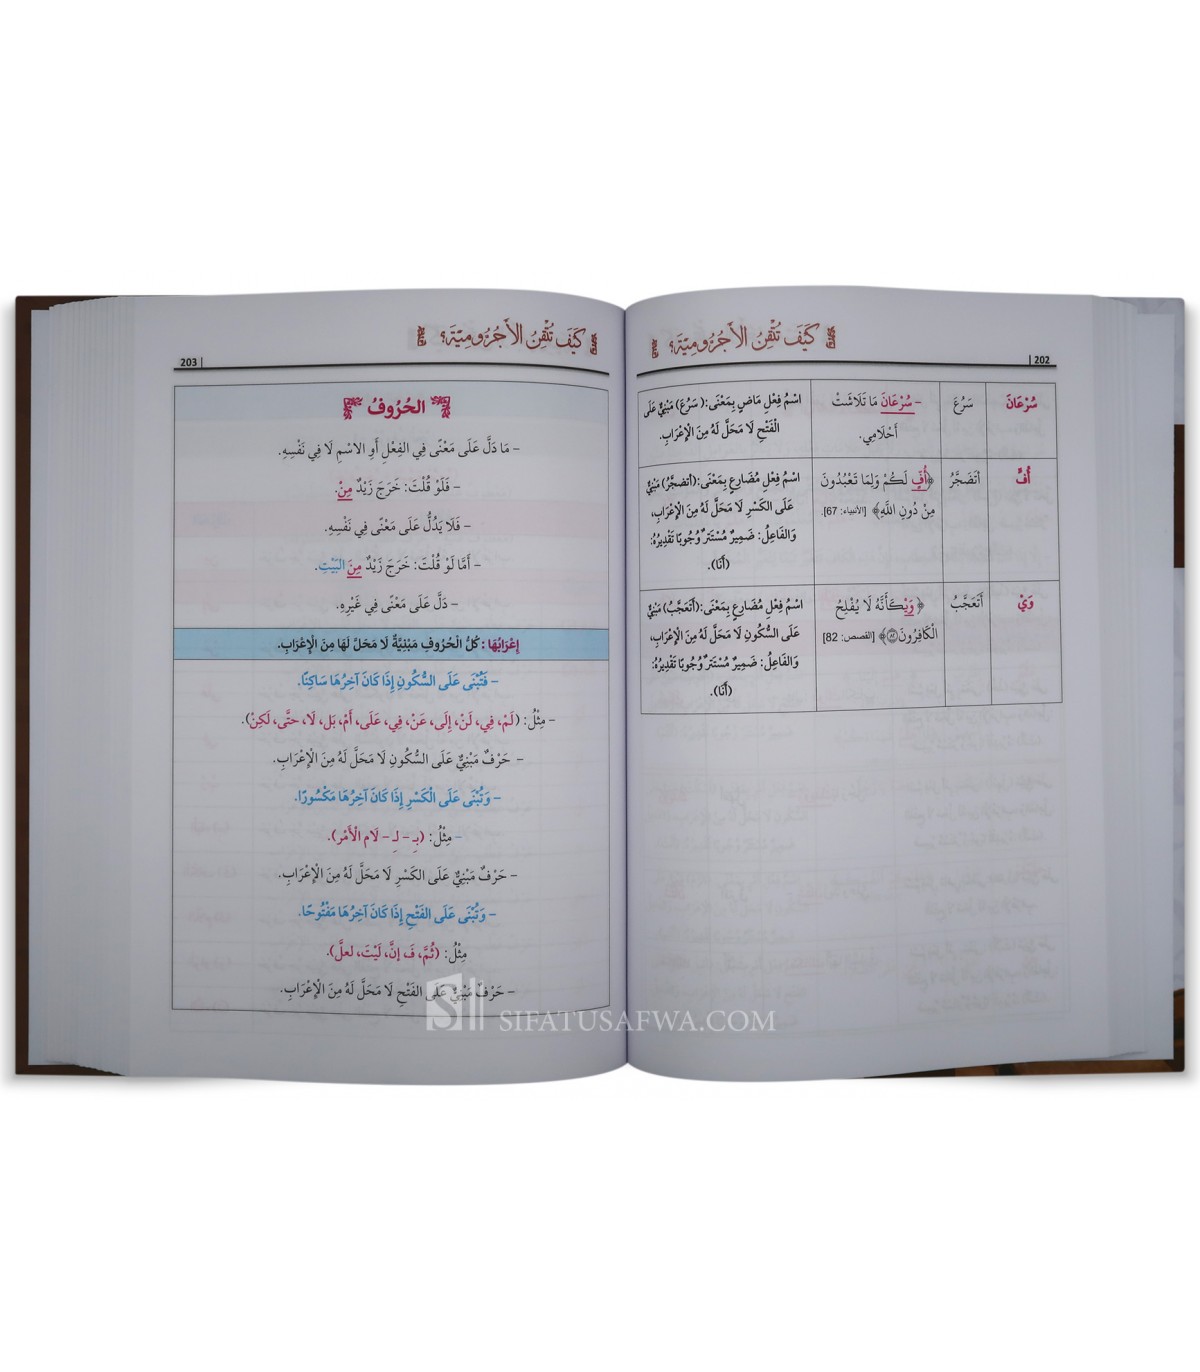 كَيْفَ تُتْقِنُ الْأَجُرُّومِيَّةَ؟
202
سُرْعَانَ
سَرُعَ
– سُرْعَانَ مَا تَلَاشَتْ
أَحْلَامِي.
اسْمُ فِعْلِ مَاضٍ بِمَعْنَى: (سَرُعَ) مَبْنِيٌّ عَلَى
الْفَتْحِ لَا مَحَلَّ لَهُ مِنَ الْإِعْرَابِ.
أُفٍّ
أَتَضَجَّرُ
﴿أُفٍّ لَكُمْ وَلِمَا تَعْبُدُونَ
مِنْ دُونِ اللَّهِ﴾ [الأنبياء: 67].
اسْمُ فِعْلِ مُضَارِعٍ بِمَعْنَى: (أتضجَّرُ) مَبْنِيٌّ
عَلَى الْكَسْرِ لَا مَحَلَّ لَهُ مِنَ الْإِعْرَابِ،
وَالْفَاعِلُ: ضَمِيرٌ مُسْتَتِرٌ وُجُوبًا تَقْدِيرُهُ:
(أَنَا).
وَيْ
أَتَعَجَّبُ
﴿وَيْكَأَنَّهُ لَا يُفْلِحُ
الْكَافِرُونَ ۝٨٢﴾ [القصص: 82]
اسْمُ فِعْلِ مُضَارِعٍ بِمَعْنَى: (أَتَعَجَّبُ) مَبْنِيٌّ
عَلَى السُّكُونِ لَا مَحَلَّ لَهُ مِنَ الْإِعْرَابِ،
وَالْفَاعِلُ: ضَمِيرٌ مُسْتَتِرٌ وُجُوبًا تَقْدِيرُهُ:
(أَنَا).
كَيْفَ تُتْقِنُ الْأَجُرُّومِيَّةَ؟
203
الحُرُوفُ
– مَا دَلَّ عَلَى مَعْنًى فِي الفِعْلِ أَو الاسْمِ لَا فِي نَفْسِهِ.
– فَلَوْ قُلْتَ: خَرَجَ زَيْدٌ مِنْ.
– فَلَا يَدُلُّ عَلَى مَعْنًى فِي نَفْسِهِ.
– أَمَّا لَوْ قُلْتَ: خَرَجَ زَيْدٌ مِنَ البَيْتِ.
– دَلَّ عَلَى مَعْنًى فِي غَيْرِهِ.
إِعْرَابُهَا: كُلُّ الْحُرُوفِ مَبْنِيَّةٌ لَا مَحَلَّ لَهَا مِنَ الْإِعْرَابِ.
– فَتُبْنَى عَلَى السُّكُونِ إِذَا كَانَ آخِرُهَا سَاكِنًا.
– مِثْلُ: (لَمْ، فِي، لَنْ، إِلَى، عَنْ، فِي، عَلَى، أَمْ، بَل، لَا، حتَّى، لَكِنْ).
– حَرْفٌ مَبْنِيٌّ عَلَى السُّكُونِ لَا مَحَلَّ لَهُ مِنَ الْإِعْرَابِ.
– وَتُبْنَى عَلَى الْكَسْرِ إِذَا كَانَ آخِرُهَا مَكْسُورًا.
– مِثْلُ: (بِـ – لِـ – لَام الْأَمْر).
– حَرْفٌ مَبْنِيٌّ عَلَى الكَسْرِ لَا مَحَلَّ لَهُ مِنَ الْإِعْرَابِ.
– وَتُبْنَى عَلَى الفَتْحِ إِذَا كَانَ آخِرُهَا مَفْتُوحًا.
مِثْلُ: (ثُمَّ، فَ، إنَّ، لَيْتَ، لعلَّ).
– حَرْفٌ مَبْنِيٌّ عَلَى الفَتْحِ لَا مَحَلَّ لَهُ مِنَ الْإِعْرَابِ.
SIFATUSAFWA.COM